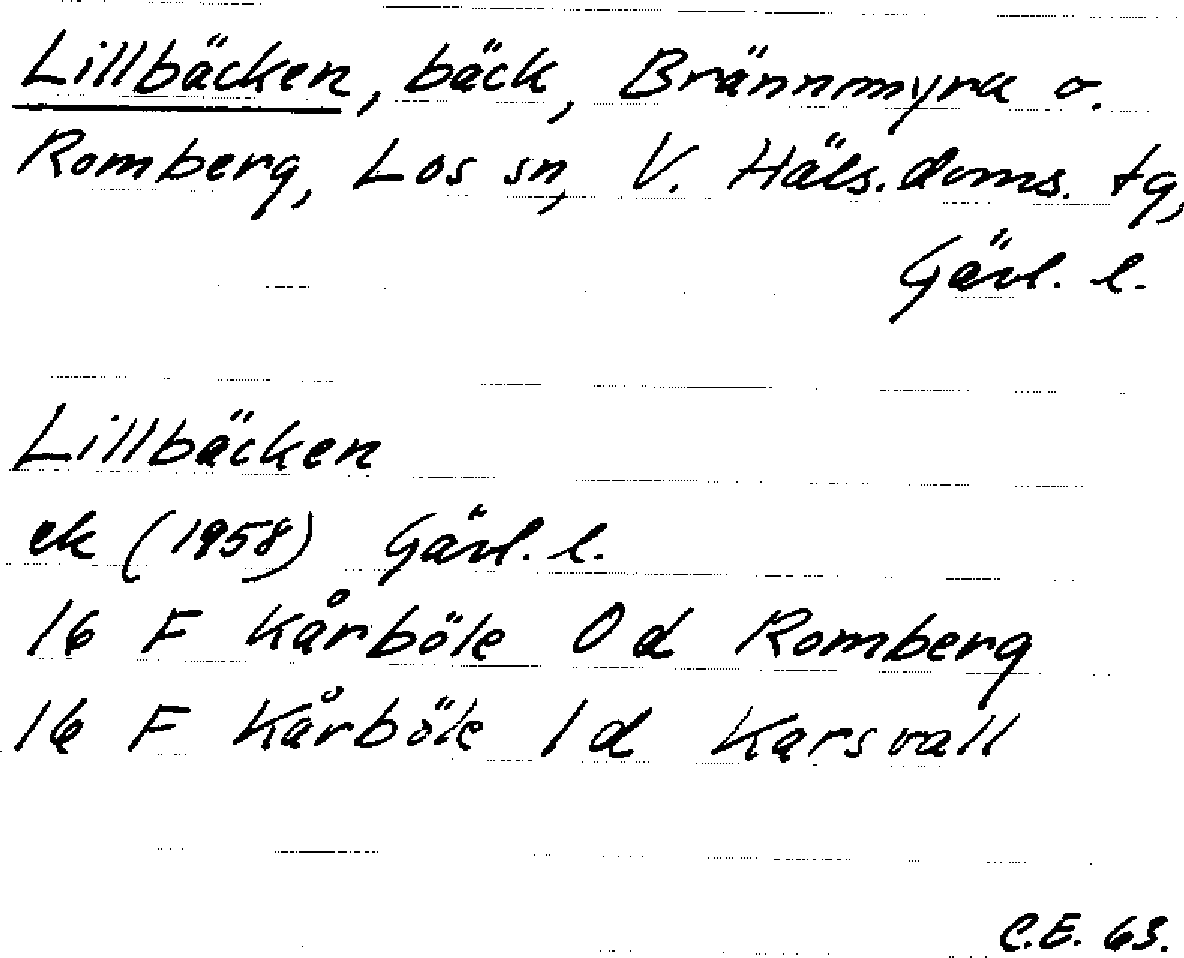 Lillbäcken, bäck, Brännmyra o.
Romberg, Los sn, V. Häls. doms. tg,
Gävl. l.
Lillbäcken
ek (1958) Gävl. l.
16 F Kårböle 0 d Romberg
16 F Kårböle 1 d Karsvall
C.E. 63.